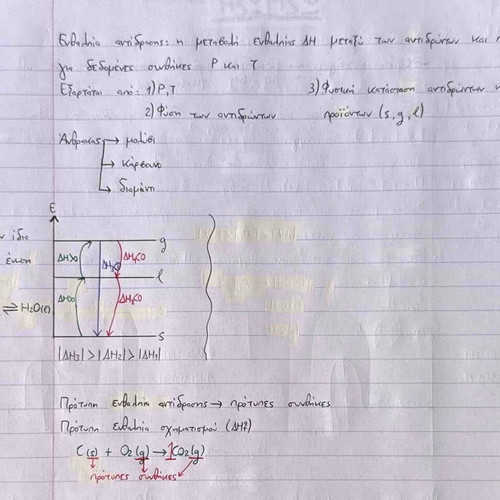 Ενθαλπία αντίδρασης: η μεταβολή ενθαλπίας ΔΗ μεταξύ των αντιδρώντων και
για δεδομένες συνθήκες P και T
Εξαρτάται από: 1) P,T 3) Φυσική κατάσταση αντιδρώντων
2) Φύση των αντιδρώντων προϊόντων (s, g, l)
Άνθρακας → μολύβι
→ κάρβουνο
→ διαμάντι
E
ίδιο
g
ένωση
ΔΗ>0 ΔΗ₃<0 ΔΗ₁<0
l
⇌ H₂O(l)
ΔΗ>0 ΔΗ₂<0
s
|ΔΗ₃| > |ΔΗ₂| > |ΔΗ₁|
Πρότυπη ενθαλπία αντίδρασης → πρότυπες συνθήκες
Πρότυπη ενθαλπία σχηματισμού (ΔΗf°)
C(s) + O₂(g) → 1CO₂(g)
πρότυπες συνθήκες